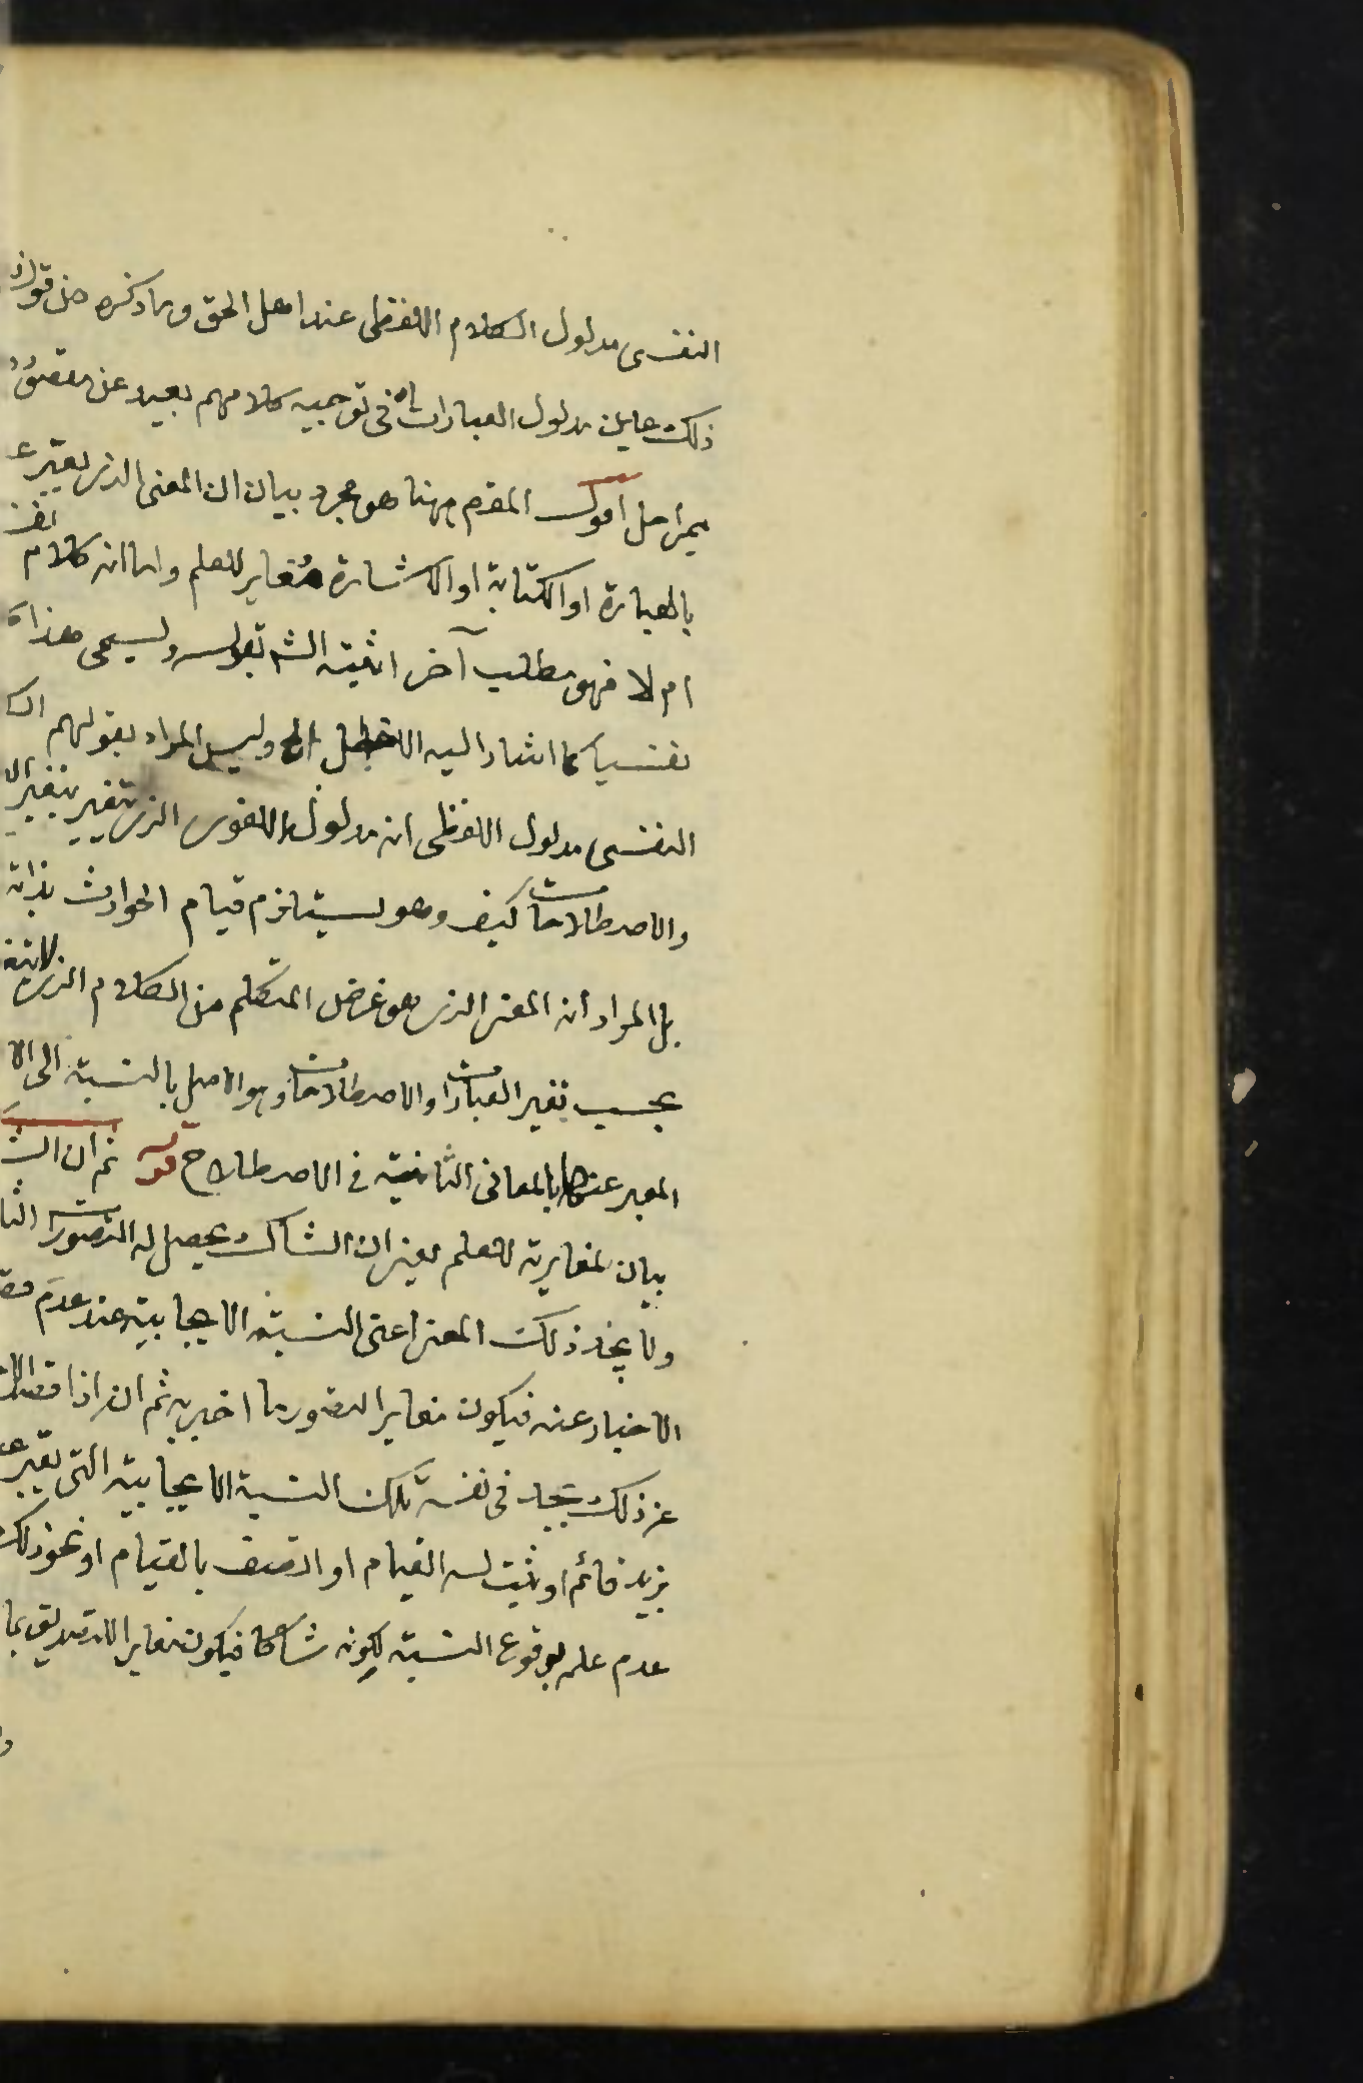 النفسى مدلول الكلام اللفظى عند اهل الحق وما ذكره من قوله
ذلك مدلول العبارات فى توجيه كلامهم بعيد عن
بمراحل اقول المقصود ههنا هو مجرد بيان ان المعنى الذى يعبر
بالعبارة او الكتابة او الاشارة مغاير للعلم واما انه كلام
ام لا فهو مطلب آخر اثبته الش بقوله ويسمى هذا
نفسيا كما اشار اليه الاخطل الخ وليس المراد بقولهم
النفسى مدلول اللفظى انه مدلول اللغوى الذى يتغير بتغير
والاصطلاحات كيف وهو يستلزم قيام الحوادث بذاته
بل المراد ان المعنى الذى هو غرض المتكلم من الكلام الذى
بحسب تغير العبارات والاصطلاحات وهو الاصل بالنسبة الى
المعبر عنها بالمعانى الثانية فى الاصطلاح قوله ثم ان
بيان لمغايرته للعلم يعنى ان الشاك يحصل له التصورات
ولا يجد ذلك المعنى اعنى النسبة الايجابية عند عدم
الاخبار عنه فيكون مغايرا لتصور ما اخبر به ثم انه اذا
عن ذلك يجد فى نفسه تلك النسبة الايجابية التى يعبر
بزيد قائم او ثبت له القيام او اتصف بالقيام او نحو ذلك
عدم علمه بوقوع النسبة لكونه شاكا فيكون مغايرا للتصديق بما